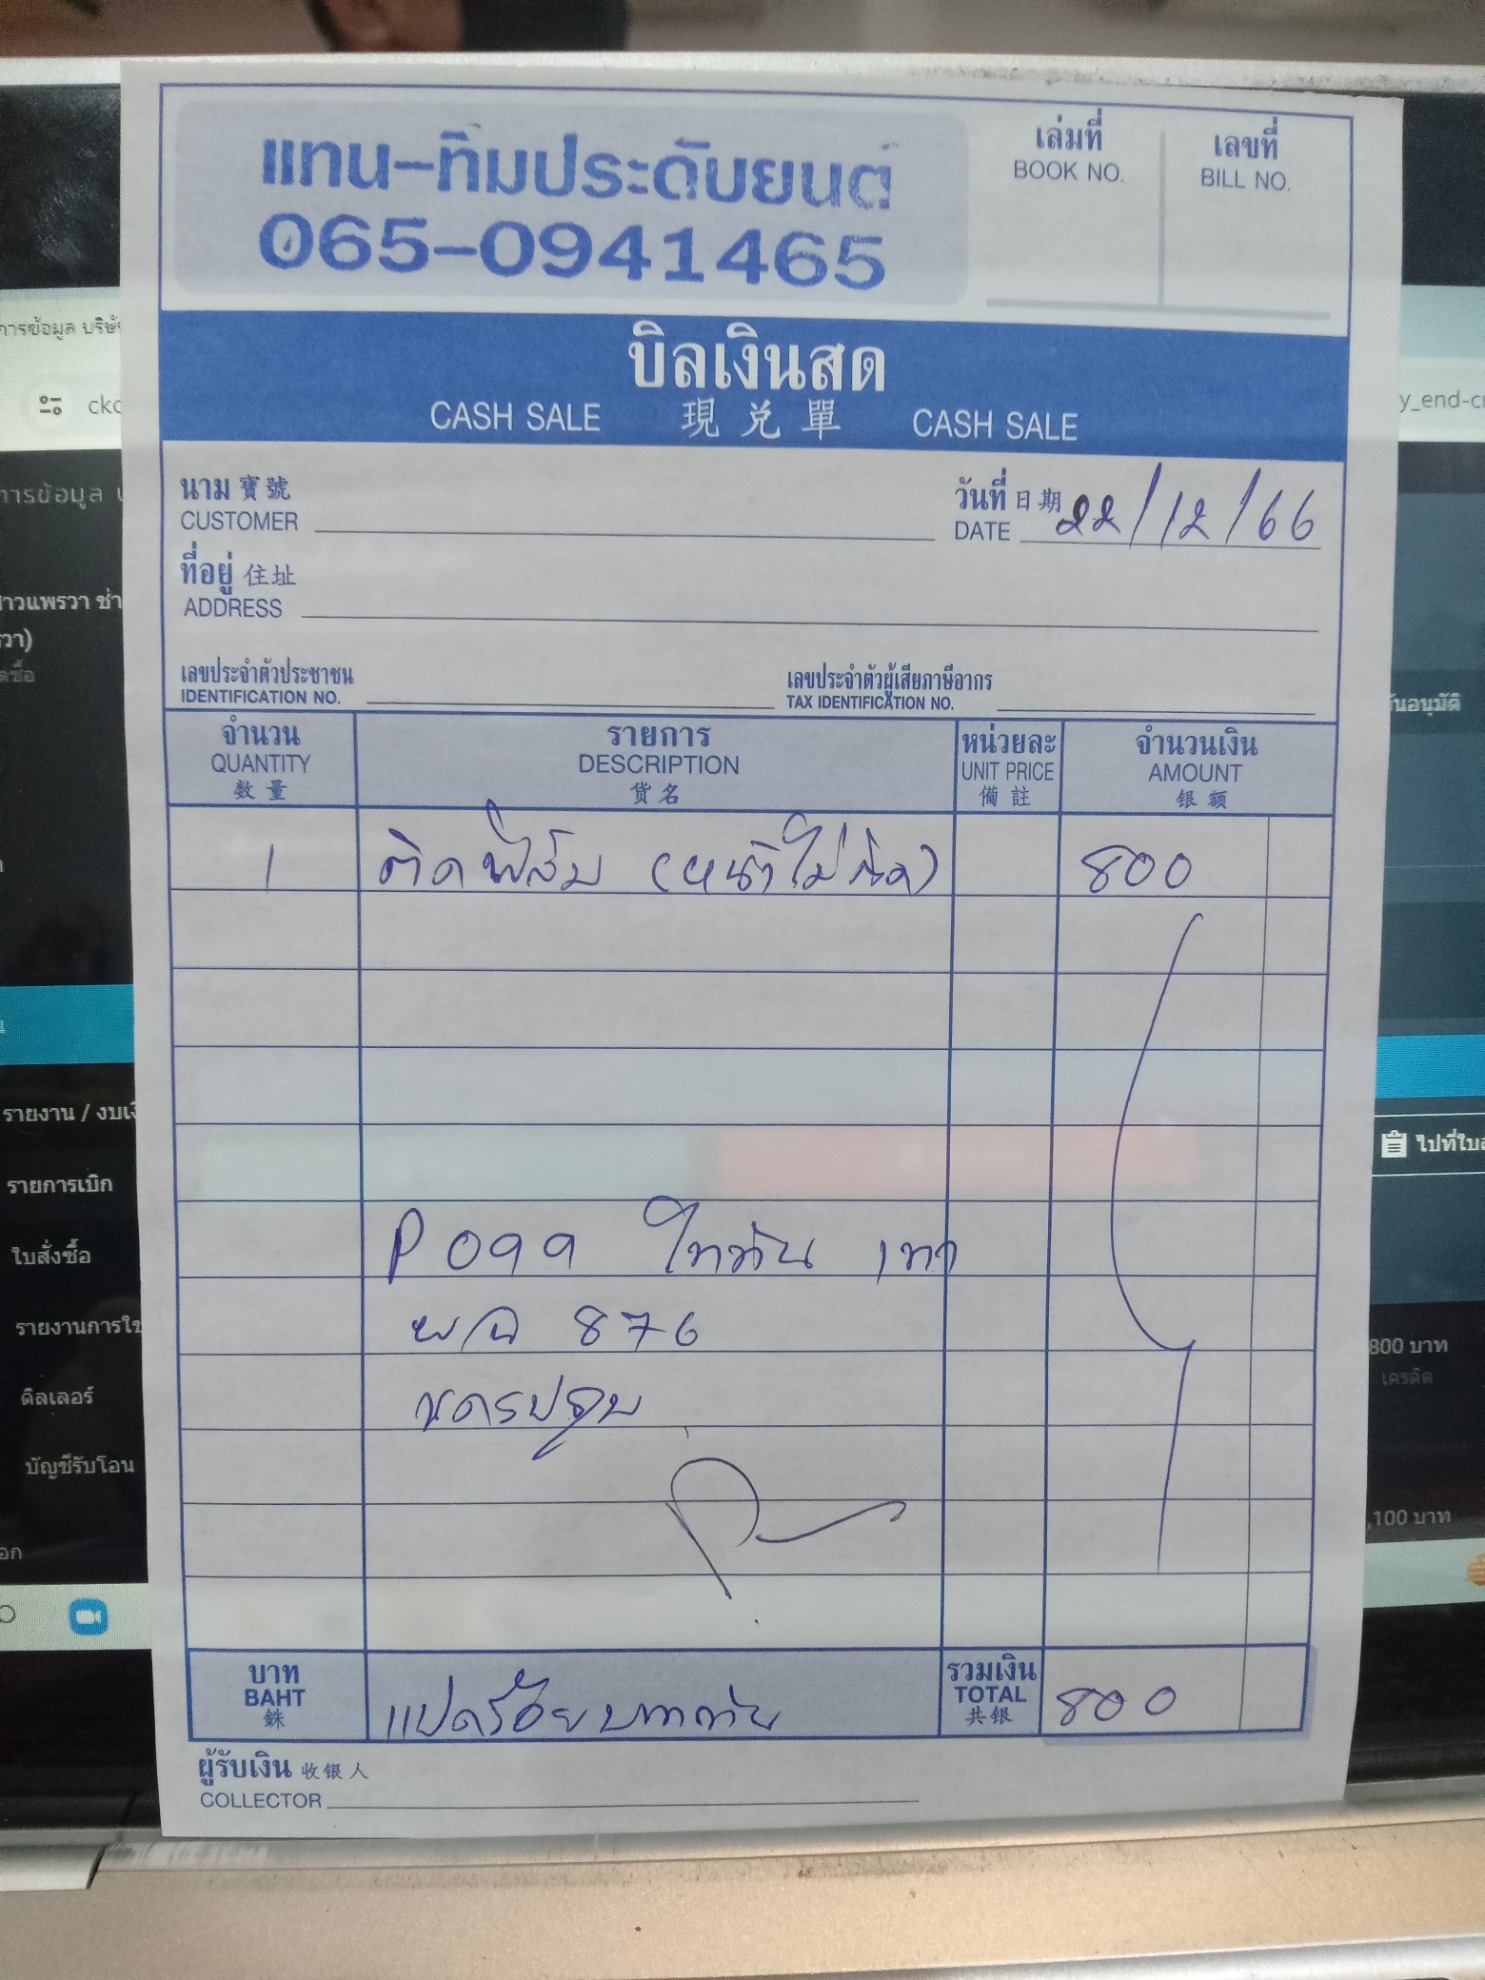 แทน-ทิมประดับยนต์
065-0941465
เล่มที่
BOOK NO.
เลขที่
BILL NO.
บิลเงินสด
CASH SALE 現兌單 CASH SALE
นาม 寶號
CUSTOMER
วันที่ 日期
DATE 22/12/66
ที่อยู่ 住址
ADDRESS
เลขประจำตัวประชาชน
IDENTIFICATION NO.
เลขประจำตัวผู้เสียภาษีอากร
TAX IDENTIFICATION NO.
จำนวน
QUANTITY
数量
รายการ
DESCRIPTION
货名
หน่วยละ
UNIT PRICE
備註
จำนวนเงิน
AMOUNT
银额
1 ติดฟิล์ม (หน้าไม่ติด) 800
P099 ไททัน เทา
876
นครปฐม
บาท
BAHT
銖
แปดร้อยบาทถ้วน
รวมเงิน
TOTAL
共银
800
ผู้รับเงิน 收银人
COLLECTOR
การข้อมูล
ckc
y_end-cr
การข้อมูล
าวแพรวา
รวา)
ดซื้อ
นอนุมัติ
รายงาน / งบเ
รายการเบิก
ใบสั่งซื้อ
รายงานการใช
ดิลเลอร์
บัญชีรับโอน
ไปที่ใบ
800 บาท
เครดิต
,100 บาท